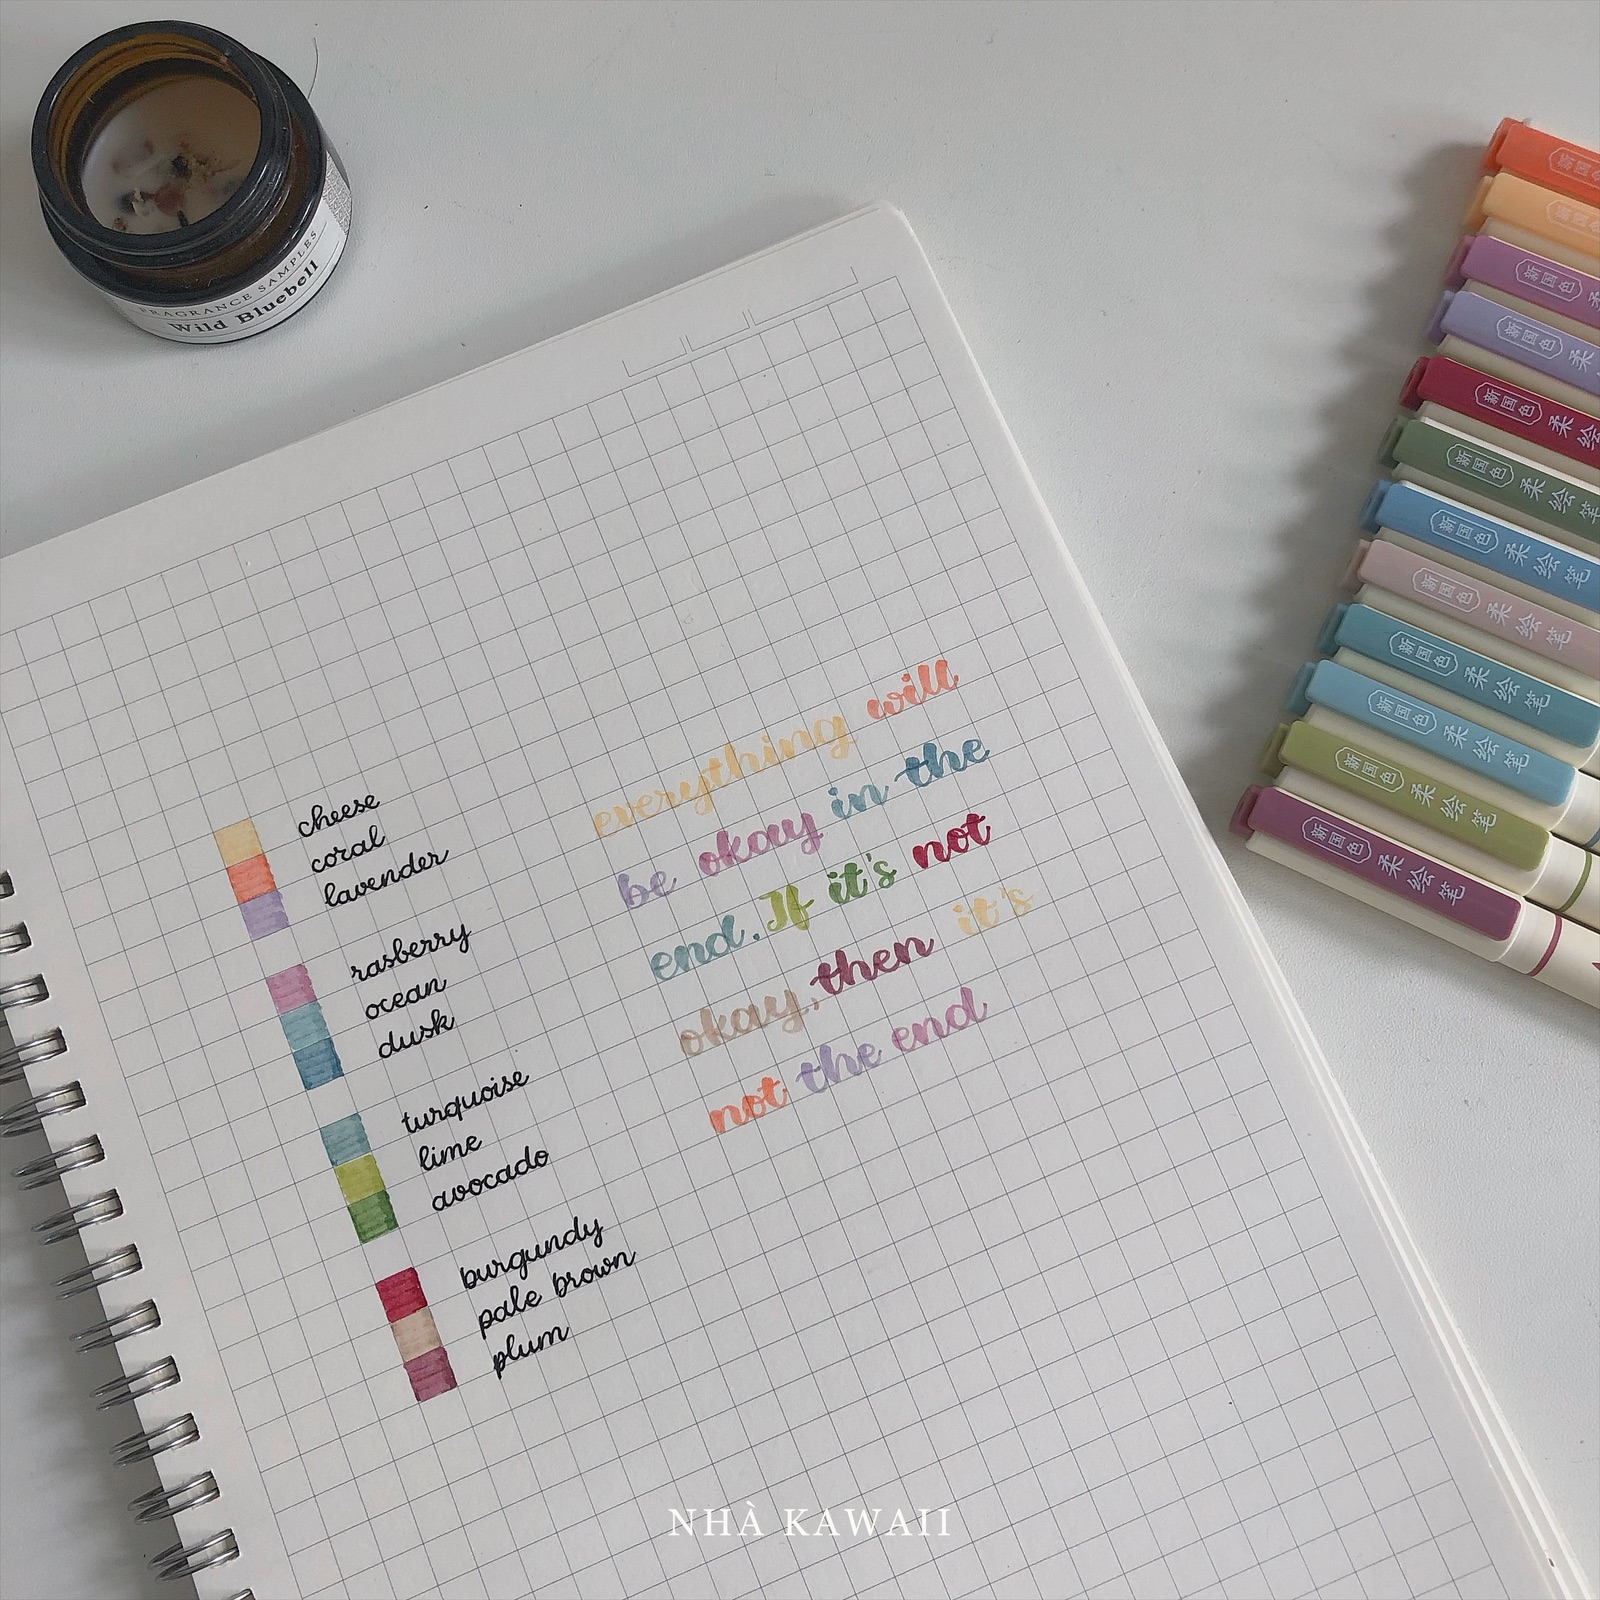 FRAGRANCE SAMPLES
Wild Bluebell
cheese
coral
lavender
rasberry
ocean
dusk
turquoise
lime
avocado
burgundy
pale brown
plum
everything will
be okay in the
end. If it's not
okay, then it's
not the end
新国色
新国色
新国色
新国色 柔
新国色 柔绘
新国色 柔绘笔
新国色 柔绘笔
新国色 柔绘笔
新国色 柔绘笔
新国色 柔绘笔
新国色 柔绘笔
新国色 柔绘笔
NHÀ KAWAII